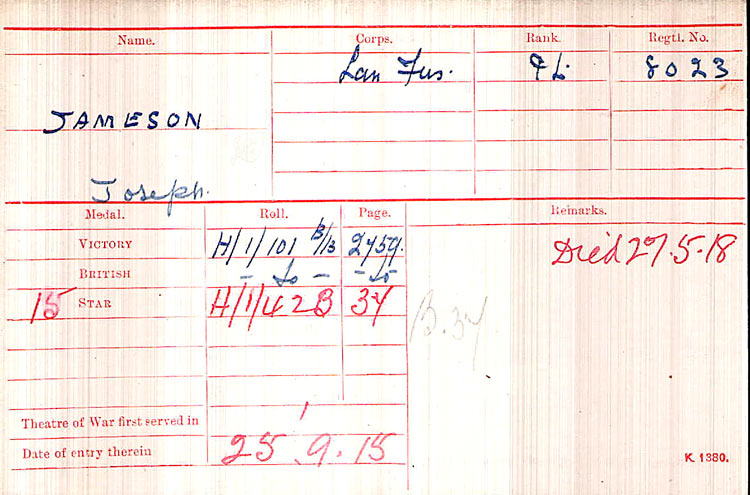 Name. Corps. Rank. Regtl. No.
Lan Fus. Pte. 8023
JAMESON
Joseph.
Medal. Roll. Page. Remarks.
VICTORY H/1/101 B/13 2459. Died 27.5.18
BRITISH - do - - do -
15 STAR H/1/42B 34
B.34
Theatre of War first served in 1
Date of entry therein 25.9.15
K 1380.